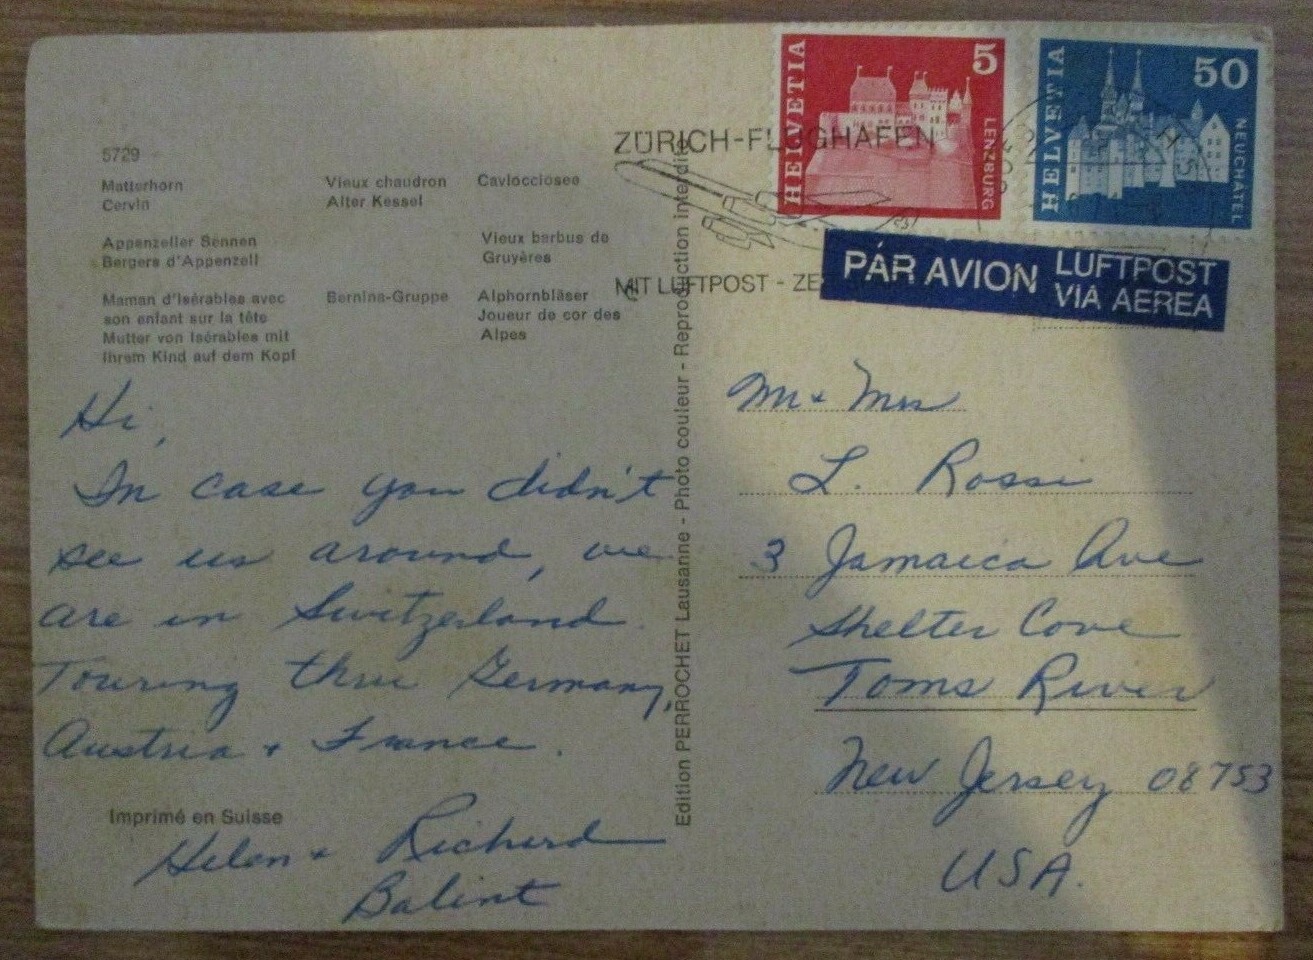 5729
Matterhorn
Cervin
Vieux chaudron
Alter Kessel
Cavlocciosee
Appenzeller Sennen
Bergers d'Appenzell
Vieux barbus de
Gruyères
Maman d'Isérables avec
son enfant sur la tête
Mutter von Isérables mit
ihrem Kind auf dem Kopf
Bernina-Gruppe
Alphornbläser
Joueur de cor des
Alpes
Hi,
In case you didn't
see us around, we
are in Switzerland.
Touring thru Germany,
Austria + France.
Imprimé en Suisse
Helen + Richard
Balint
Edition PERROCHET Lausanne - Photo couleur - Reproduction interdite
ZÜRICH-FLUGHAFEN
MIT LUFTPOST -
HELVETIA
5
LENZBURG
HELVETIA
50
NEUCHÂTEL
PAR AVION
LUFTPOST
VIA AEREA
Mr + Mrs
L. Rossi
3 Jamaica Ave
Shelter Cove
Toms River
New Jersey 08753
USA.